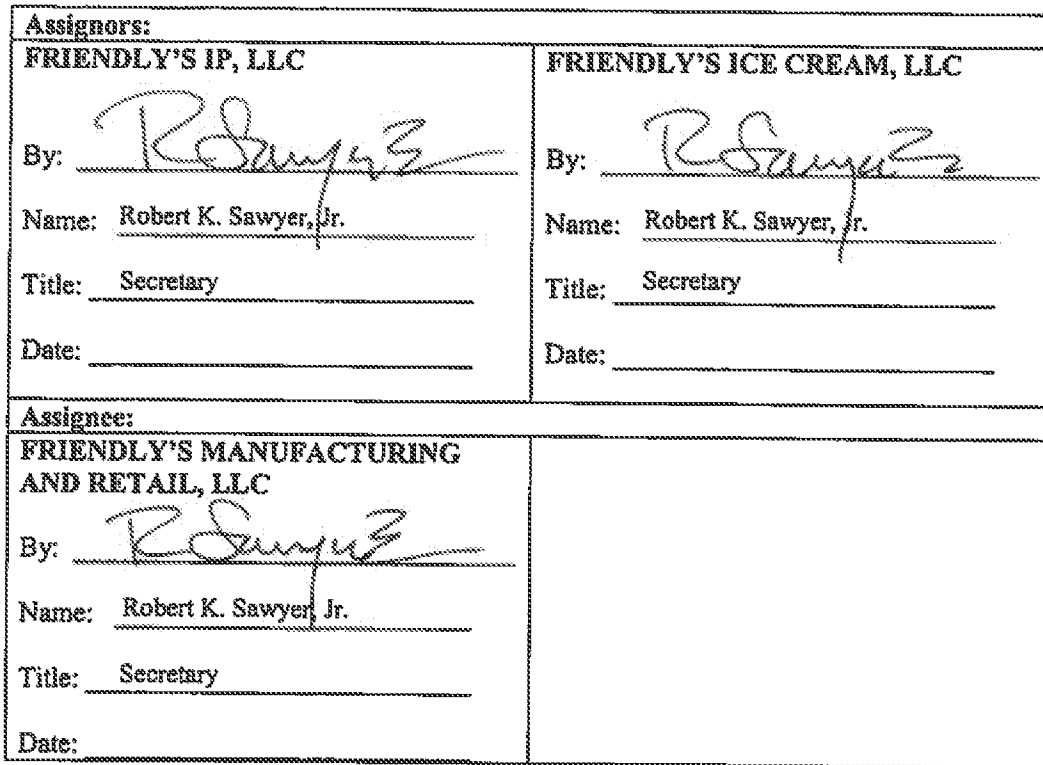 Assignors:
FRIENDLY'S IP, LLC
By: R Sawyer
Name: Robert K. Sawyer, Jr.
Title: Secretary
Date:
FRIENDLY'S ICE CREAM, LLC
By: R Sawyer
Name: Robert K. Sawyer, Jr.
Title: Secretary
Date:
Assignee:
FRIENDLY'S MANUFACTURING
AND RETAIL, LLC
By: R Sawyer
Name: Robert K. Sawyer, Jr.
Title: Secretary
Date: